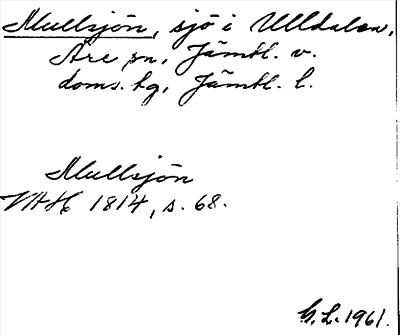 Mullsjön, sjö i Ulldalen,
Åre sn, Jämtl. v.
doms. tg, Jämtl. l.
Mullsjön
VAH 1814, s. 68.
G.L. 1961.